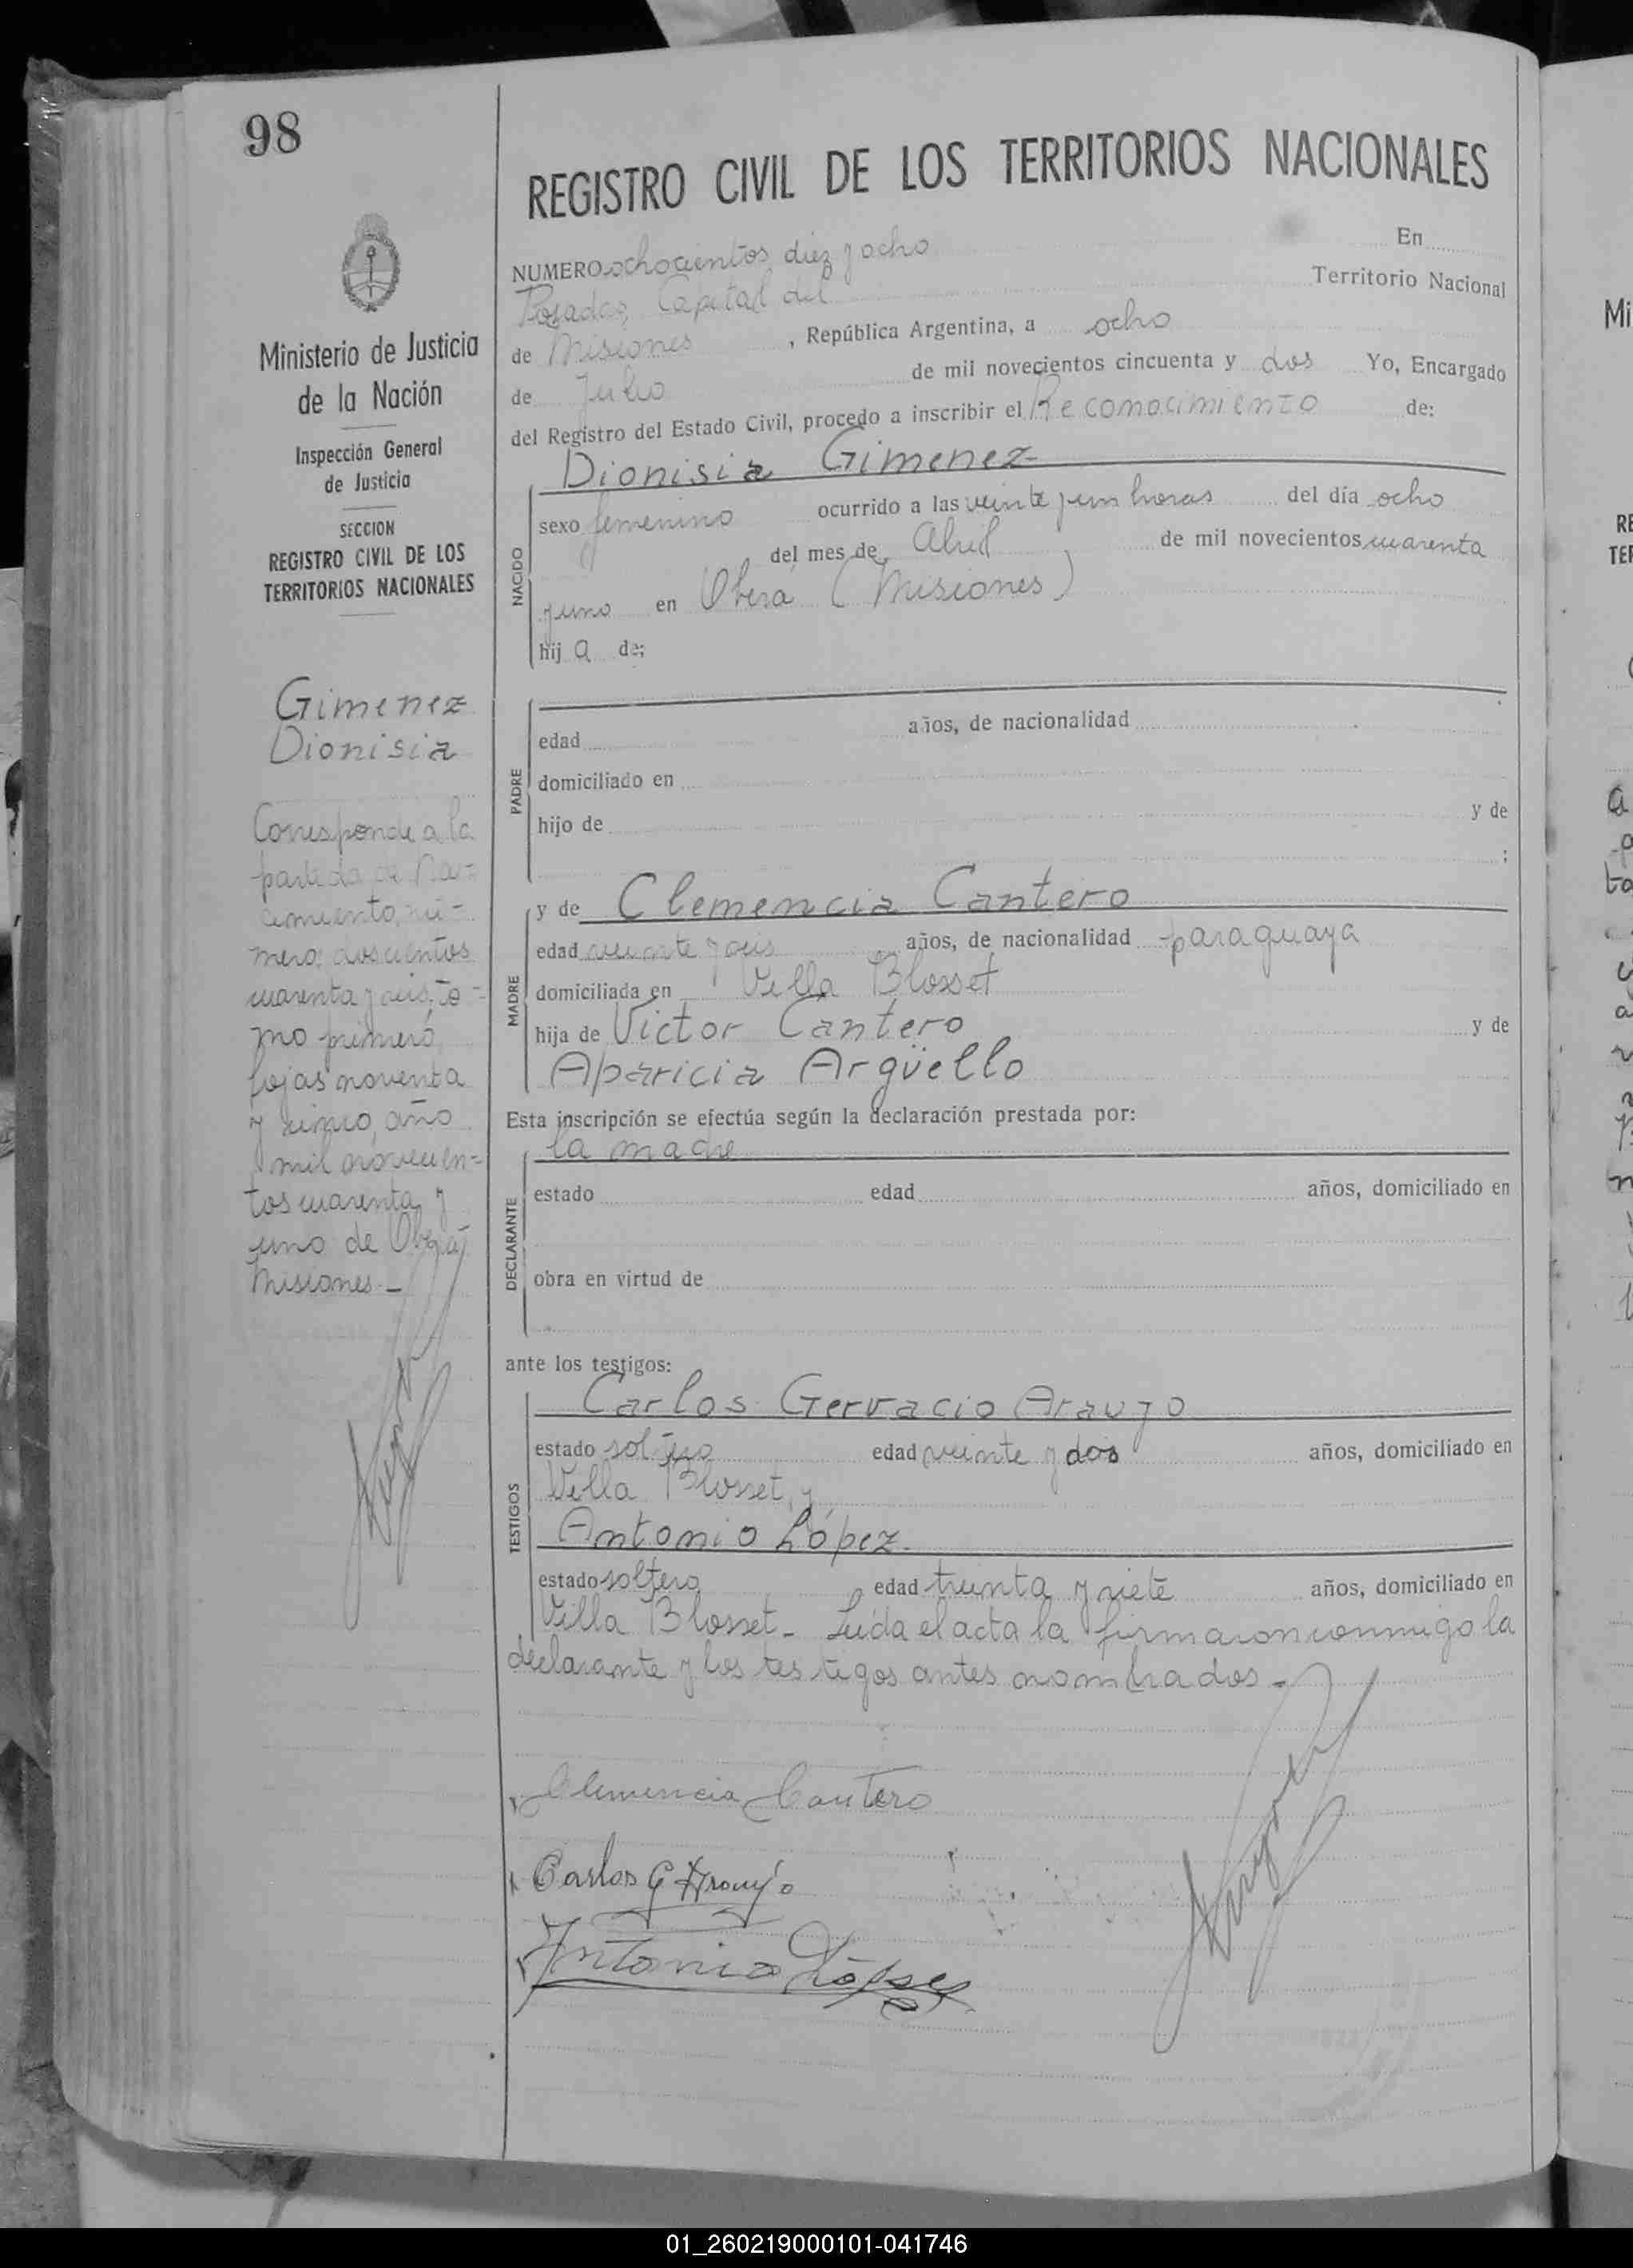 98
Ministerio de Justicia
de la Nación
Inspección General
de Justicia
SECCION
REGISTRO CIVIL DE LOS
TERRITORIOS NACIONALES
Gimenez
Dionisia
Corresponde a la
partida de Na=
cimiento, nú=
mero doscientos
cuarenta y seis, to=
mo primero,
fojas noventa
y cinco, año
mil novecien=
tos cuarenta y
uno de Oberá,
Misiones.-
REGISTRO CIVIL DE LOS TERRITORIOS NACIONALES
NUMERO ochocientos diez y ocho En
Posadas, Capital del Territorio Nacional
de Misiones, República Argentina, a ocho
de Julio de mil novecientos cincuenta y dos Yo, Encargado
del Registro del Estado Civil, procedo a inscribir el Reconocimiento de:
Dionisia Gimenez
NACIDO
sexo femenino ocurrido a las veinte y un horas del día ocho
del mes de Abril de mil novecientos cuarenta
y uno en Oberá (Misiones)
hij a de:
PADRE
edad años, de nacionalidad
domiciliado en
hijo de y de
;
MADRE
y de Clemencia Cantero
edad veinte y seis años, de nacionalidad paraguaya
domiciliada en Villa Blosset
hija de Victor Cantero y de
Aparicia Argüello
Esta inscripción se efectúa según la declaración prestada por:
la madre
DECLARANTE
estado edad años, domiciliado en
obra en virtud de
ante los testigos:
TESTIGOS
Carlos Gervacio Araujo
estado soltero edad veinte y dos años, domiciliado en
Villa Blosset, y
Antonio López.
estado soltero edad treinta y siete años, domiciliado en
Villa Blosset.- Leída el acta la firmaron conmigo la
declarante y los testigos antes nombrados.-
Clemencia Cantero
Carlos G Araujo
Antonio López
01_260219000101-041746